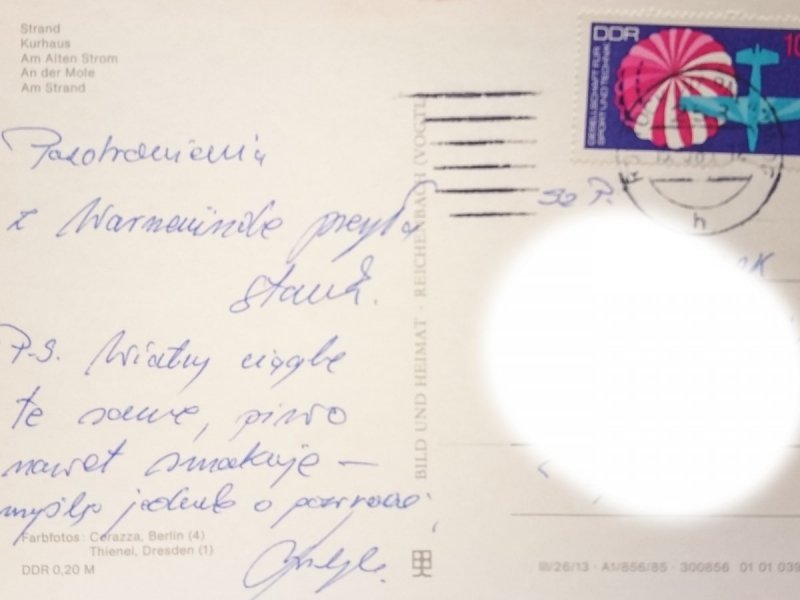 Strand
Kurhaus
Am Alten Strom
An der Mole
Am Strand
DDR
10
GESELLSCHAFT FÜR
SPORT UND TECHNIK
Pozdrowienia
z Warnemünde przesyła
P.S. Wiatry ciągle
te same, piwo
nawet smakuje –
myślę jednak o
Farbfotos: Corazza, Berlin (4)
Thienel, Dresden (1)
DDR 0,20 M
BILD UND HEIMAT · REICHENBACH (VOGTL
Sz. P.
III/26/13 · A1/856/85 · 300856 01 01 039